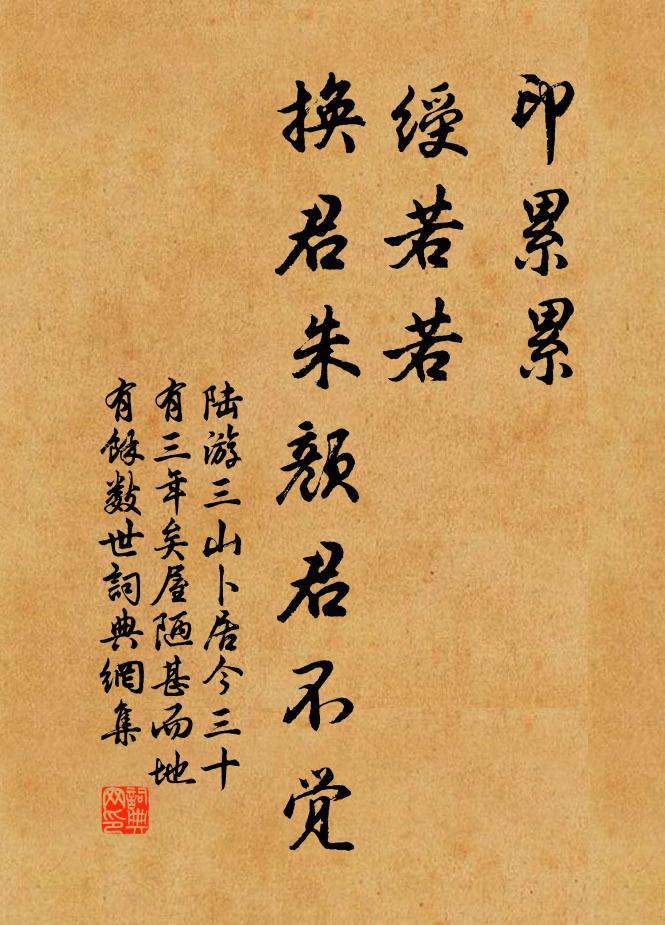 印累累
綬若若
換君朱顏君不觉
陆游三山卜居今三十
有三年矣屋陋甚而地
有餘数世詞典網集
詞典
网印